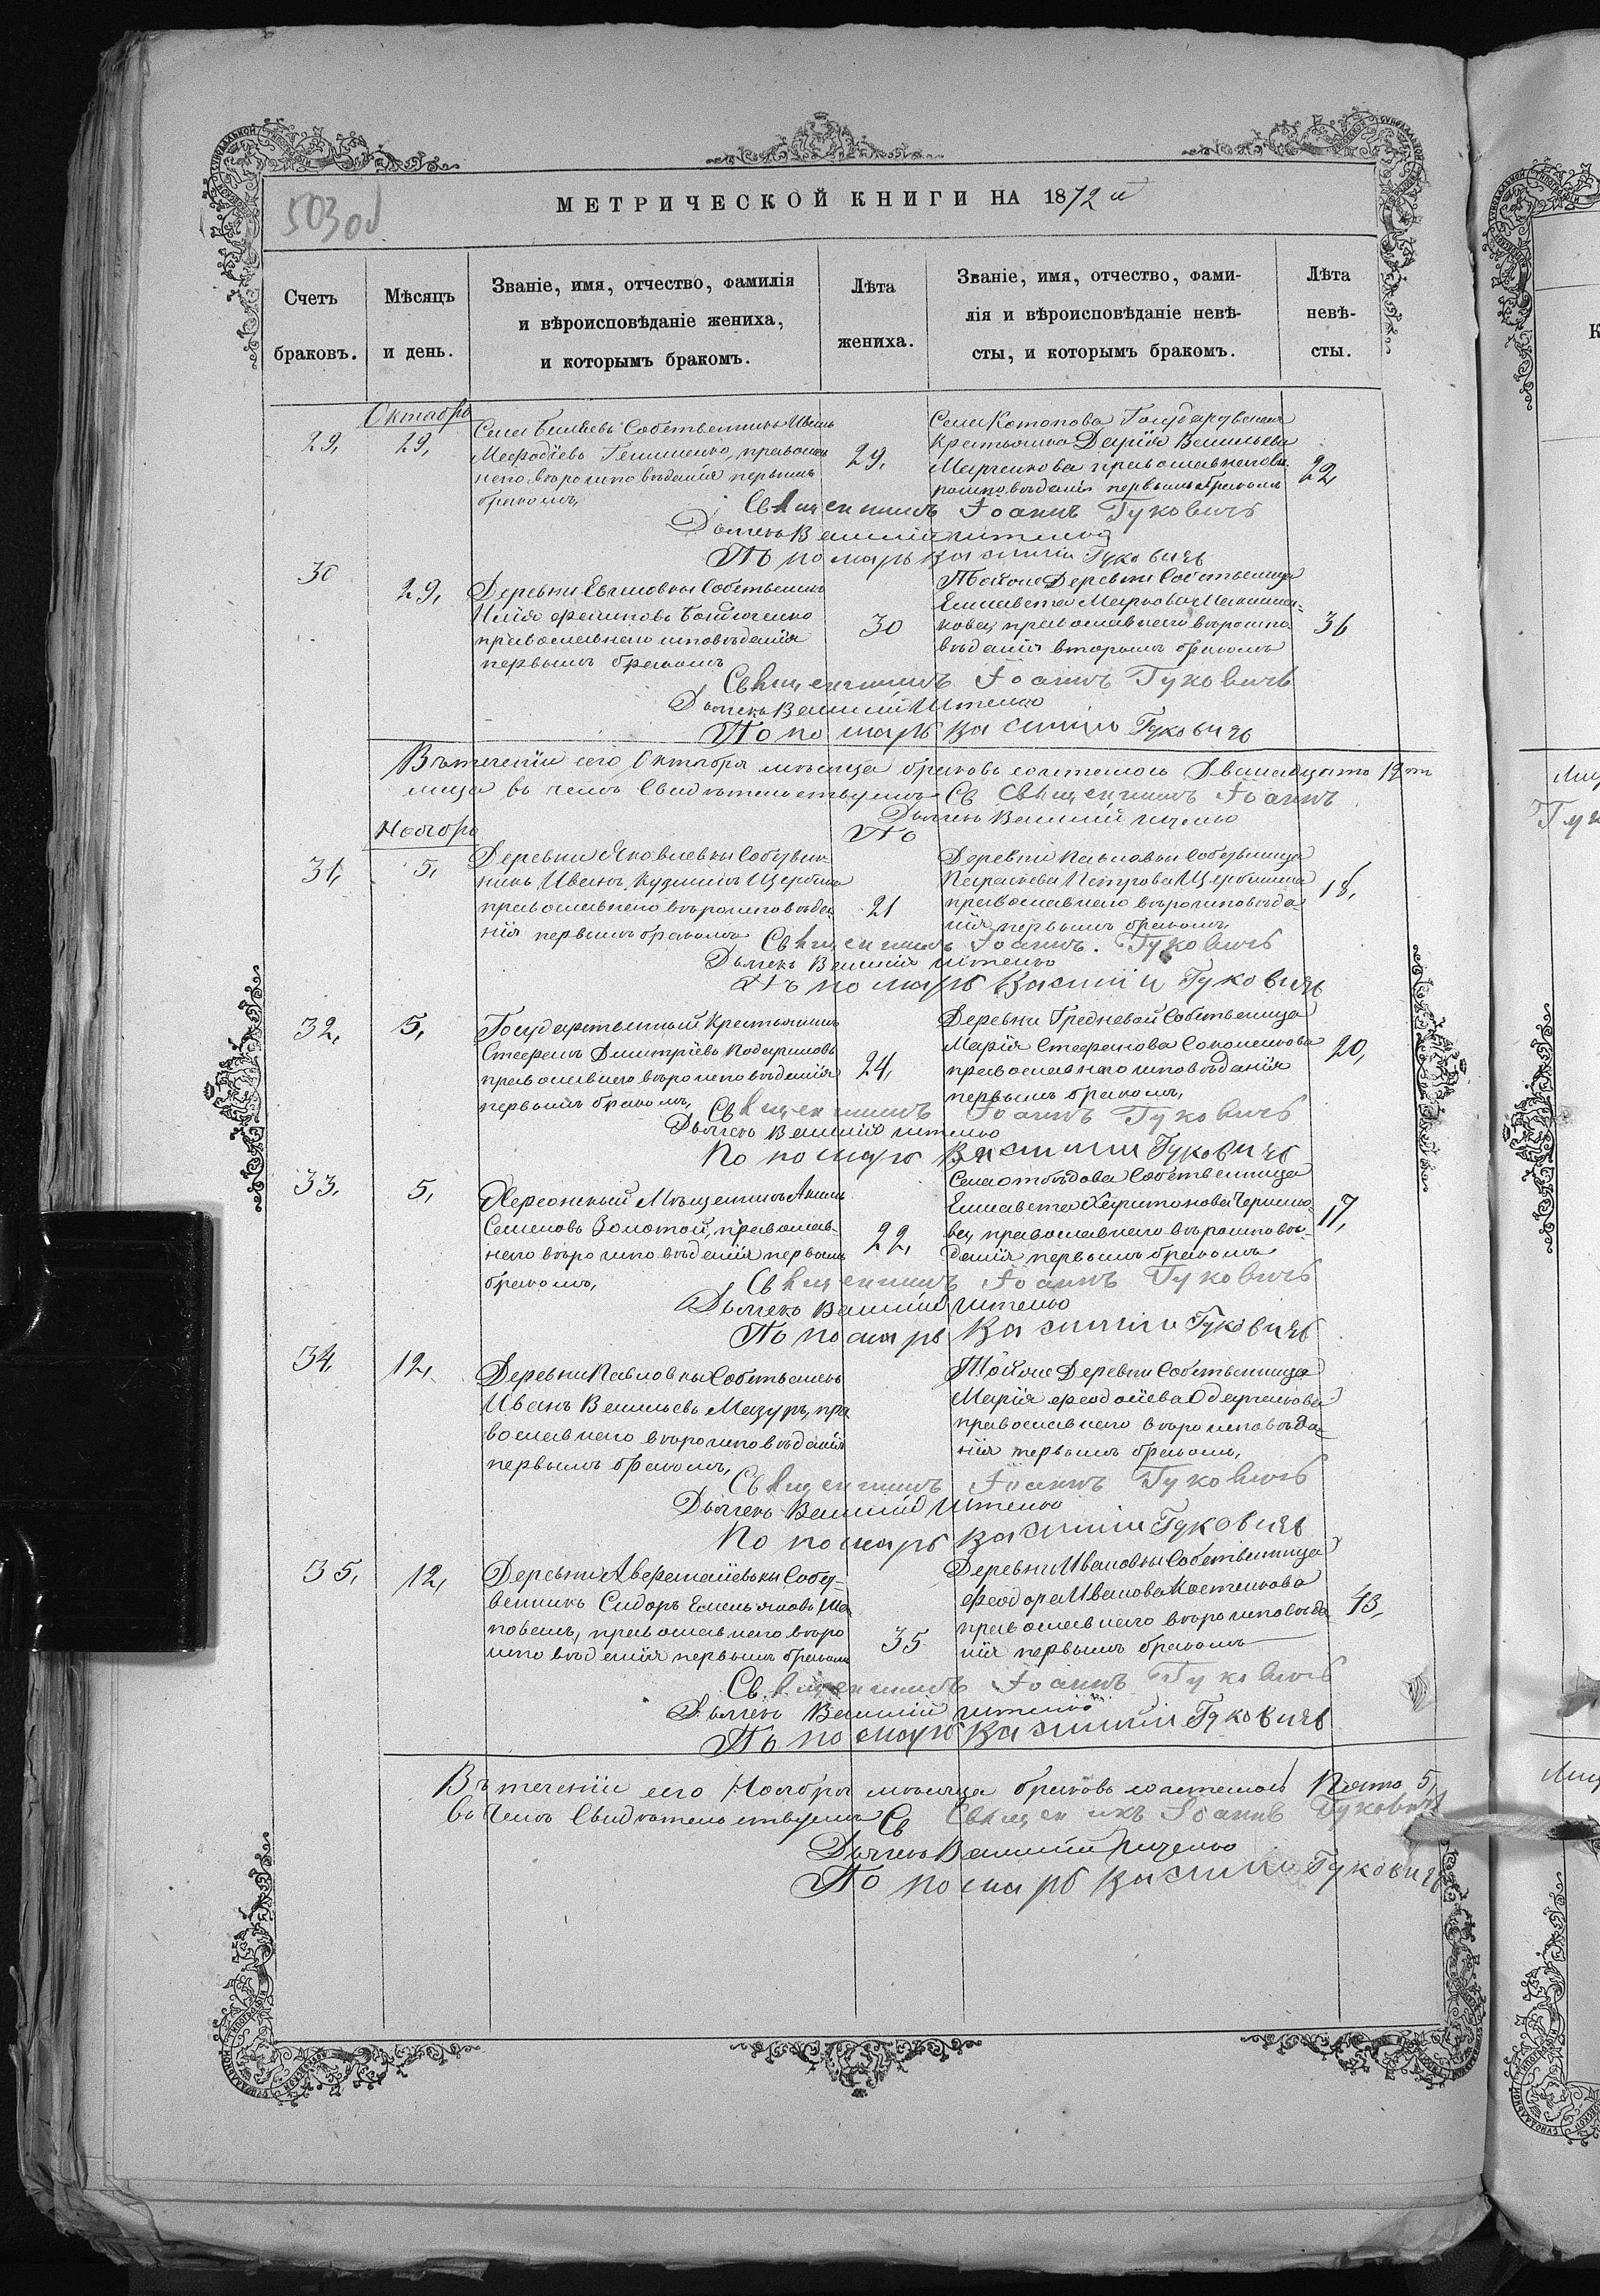 503об
МЕТРИЧЕСКОЙ КНИГИ НА 1872й
Счетъ
браковъ.
Мѣсяцъ
и день.
Званіе, имя, отчество, фамилія
и вѣроисповѣданіе жениха,
и которымъ бракомъ.
Лѣта
жениха.
Званіе, имя, отчество, фами-
лія и вѣроисповѣданіе невѣ-
сты, и которымъ бракомъ.
Лѣта
невѣ-
сты.
Октябрь
29,
29,
Села Собственникъ Иванъ
Мефодіевъ православ
наго вѣроисповѣданія первымъ
бракомъ,
29,
Села Государственная
крестьянка Дарія Васильева
Марченкова православнаго вѣ
роисповѣданія первымъ бракомъ
22
Священникъ Іоаннъ Гуковичъ
Дьячекъ Василій
Пономарь Василій Гуковичъ
30
29,
Деревни Собственникъ
Илія Филиповъ
православнаго исповѣданія
первымъ бракомъ
30
Тойже Деревни Собственница
Елисавета Маркова
кова, православнаго вѣроиспо
вѣданія вторымъ бракомъ
36
Священникъ Іоаннъ Гуковичъ
Дьячекъ Василій
Пономарь Василій Гуковичъ
Въ теченіи сего Октября мѣсяца браковъ состоялось Двенадцать 12ть
въ чемъ Свидѣтельствуемъ Св Священникъ Іоаннъ
Дьячекъ Василій
По
Ноябрь
31,
5,
Деревни Яковлевки Собствен
никъ Иванъ Кузминъ Щербина
православнаго вѣроисповѣда
нія первымъ бракомъ
21
Деревни Павловки Собственница
Параскева Петрова Щербинина
православнаго вѣроисповѣда-
нія первымъ бракомъ,
18,
Священникъ Іоаннъ. Гуковичъ
Дьячекъ Василій
Пономарь Василій Гуковичъ
32,
5,
Государственный Крестьянинъ
Стефанъ Димитріевъ
православнаго вѣроисповѣданія
первымъ бракомъ,
24,
Деревни Гредневой Собственница
Марія Стефанова Соколенкова
православнаго исповѣданія
первымъ бракомъ,
20,
Священникъ Іоаннъ Гуковичъ
Дьячекъ Василій
Пономарь Василій Гуковичъ
33,
5,
Херсонскій Мѣщанинъ
Семеновъ Золотой, православ-
наго вѣроисповѣданія первымъ
бракомъ,
22,
Села Отбѣдова Собственница
Елисавета Харитонова
ва, православнаго вѣроисповѣ-
данія первымъ бракомъ
17,
Священникъ Іоаннъ Гуковичъ
Дьячекъ Василій
Пономарь Василій Гуковичъ
34
12,
Деревни Павловки Собственникъ
Иванъ Васильевъ Мазуръ, пра
вославнаго вѣроисповѣданія
первымъ бракомъ,
Тойже Деревни Собственница
Марія Феодосіева
православнаго вѣроисповѣда
нія первымъ бракомъ,
Священникъ Іоаннъ Гуковичъ
Дьячекъ Василій
Пономарь Василій Гуковичъ
35,
12,
Деревни Собст-
венникъ Сидоръ Емельяновъ Ша
повалъ, православнаго вѣро
исповѣданія первымъ бракомъ
35
Деревни Ивановки Собственница
Феодора Иванова Костенкова
православнаго вѣроисповѣда
нія первымъ бракомъ
43,
Священникъ Іоаннъ Гуковичъ
Дьячекъ Василій
Пономарь Василій Гуковичъ
Въ теченіи сего Ноября мѣсяца браковъ состоялось Пять 5,
въ чемъ Свидѣтельствуемъ Св Священикъ Іоаннъ Гуковичъ
Дьячекъ Василій
Пономарь Василій Гуковичъ